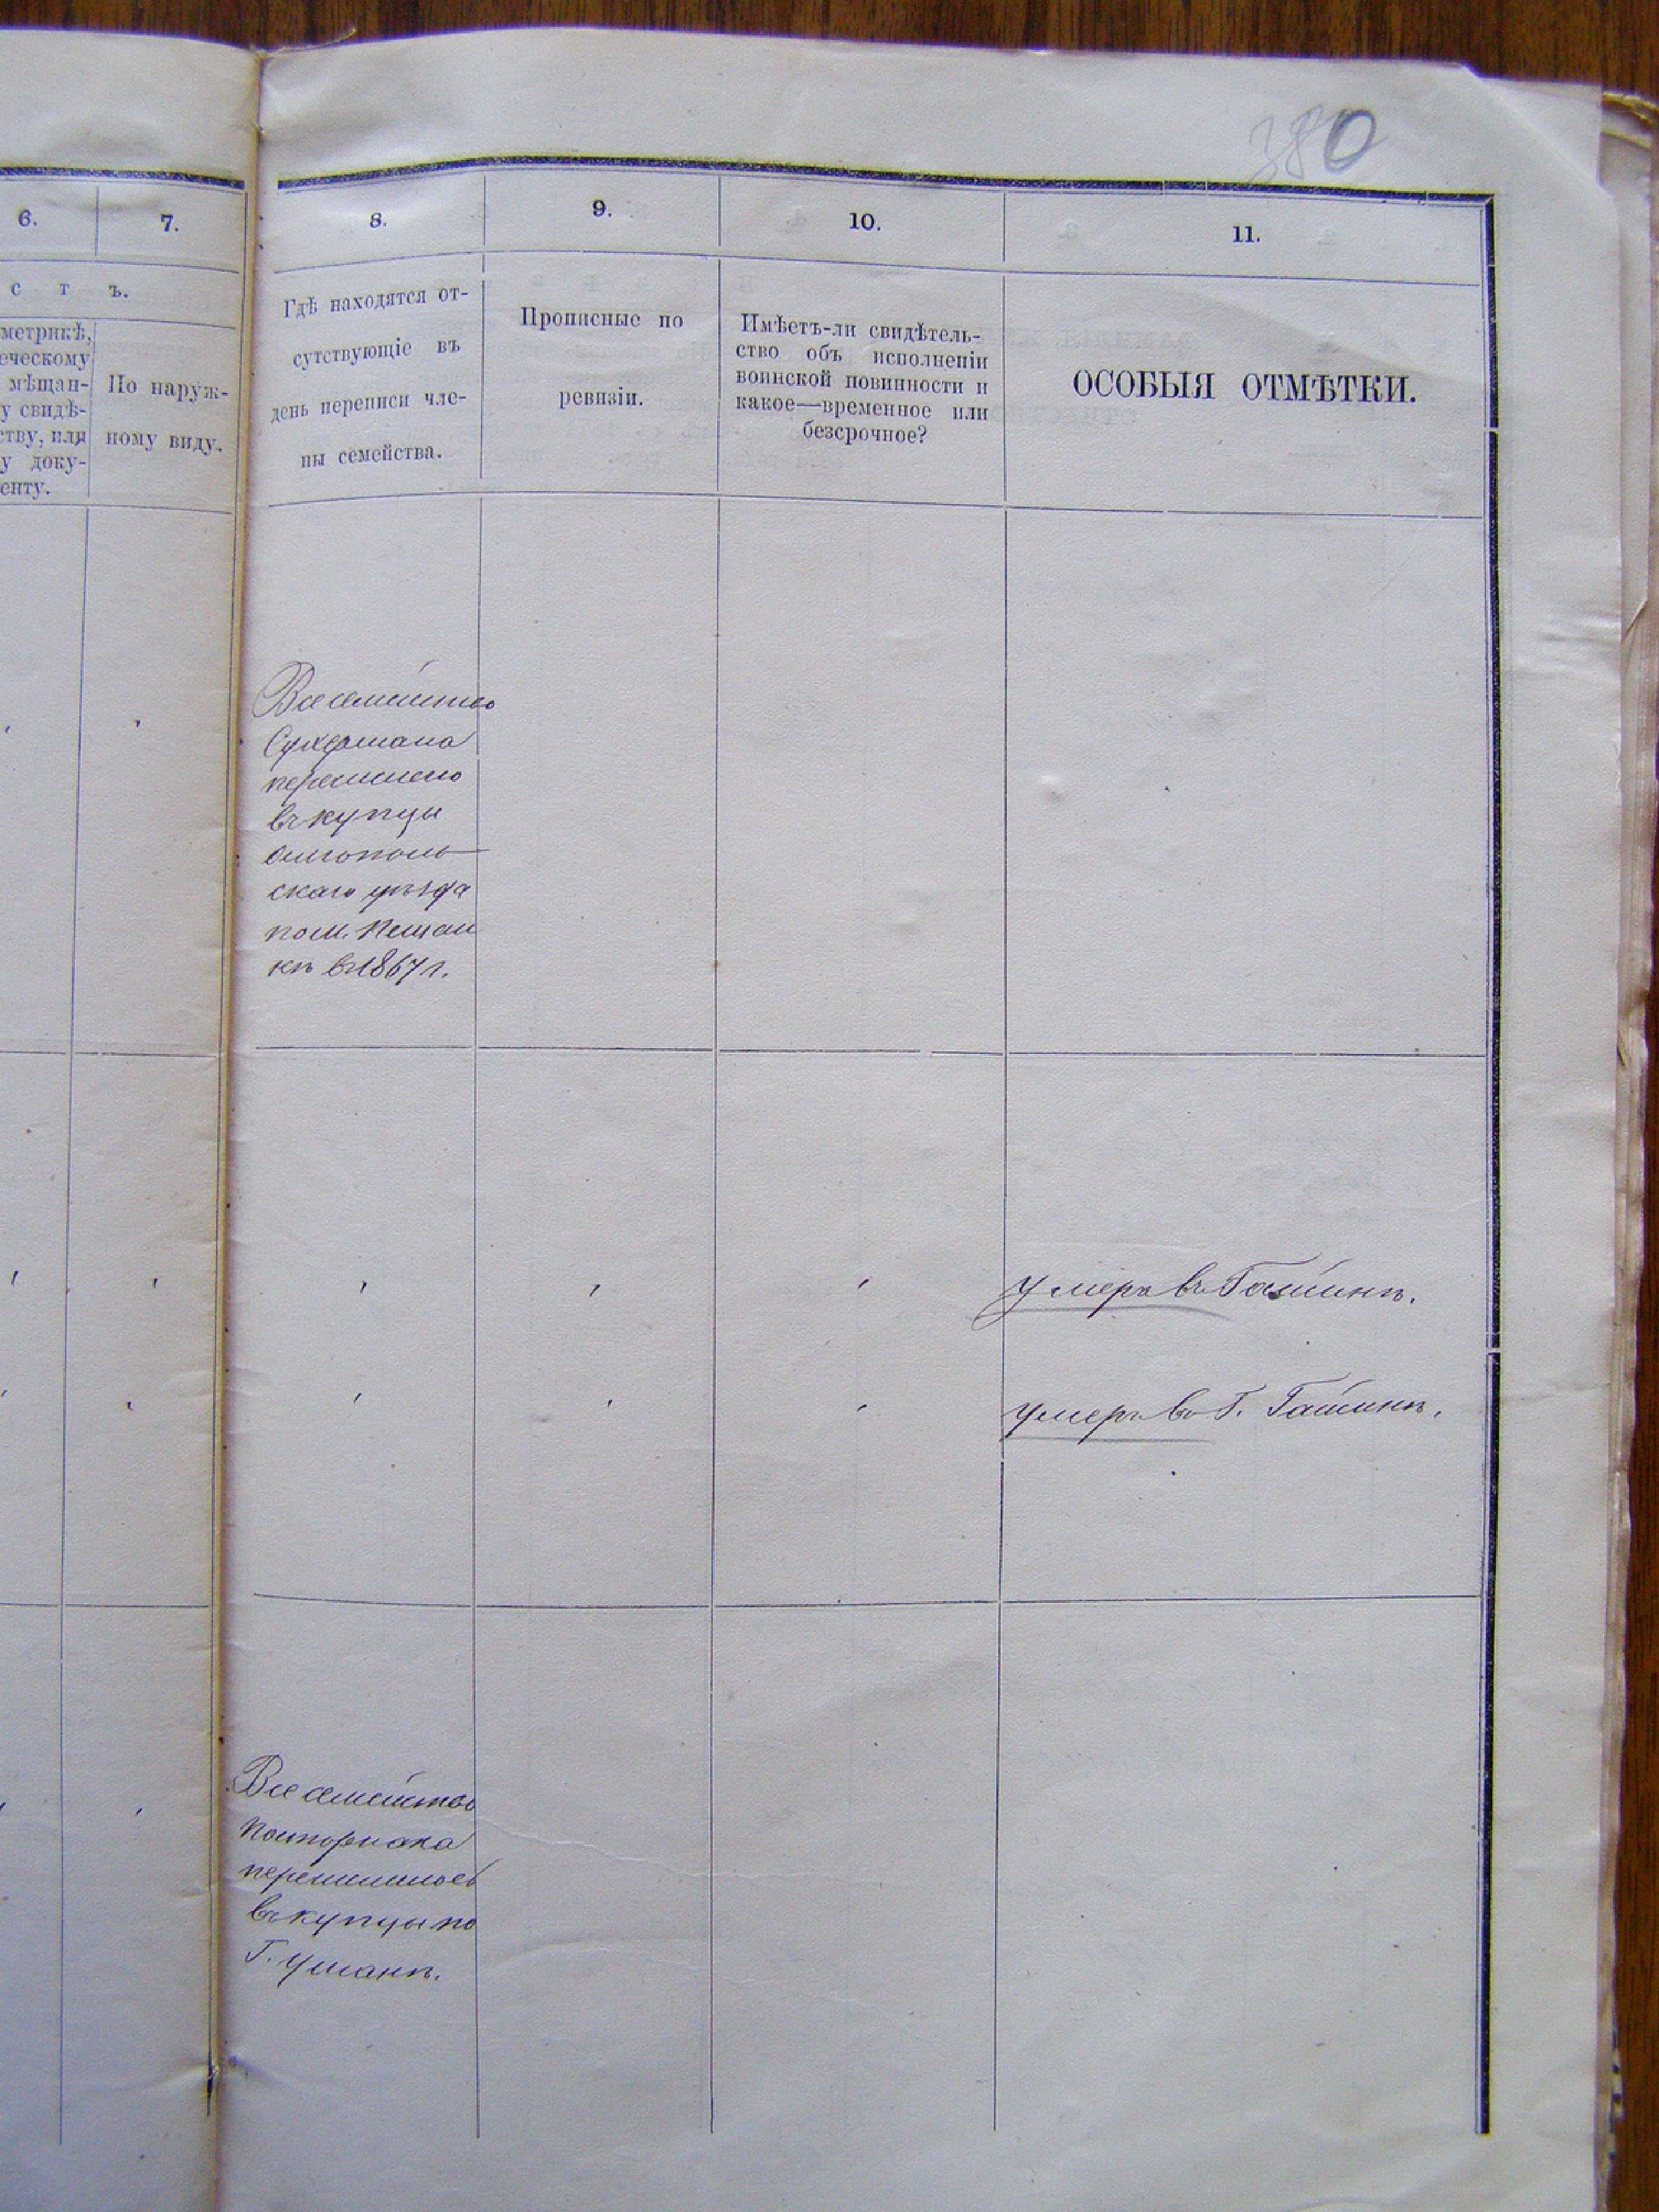 380
6.
7.
8.
9.
10.
11.
с т ъ.
метрикѣ,
еческому
мѣщан-
у свидѣ-
ству, или
у доку-
енту.
По наруж-
ному виду.
Гдѣ находятся от-
сутствующіе въ
день переписи чле-
ны семейства.
Прописные по
ревизіи.
Имѣетъ-ли свидѣтель-
ство объ исполненіи
воинской повинности и
какое—временное или
безсрочное?
ОСОБЫЯ ОТМѢТКИ.
Все семейство
перечислено
въ купцы
ольгополь-
скаго уѣзда
по м. Песчан
кѣ въ 1867 г.
умеръ въ Гайсинѣ.
умеръ въ Г. Гайсинѣ.
Все семейство
перечислилось
въ купцы по
Г. Уманѣ.